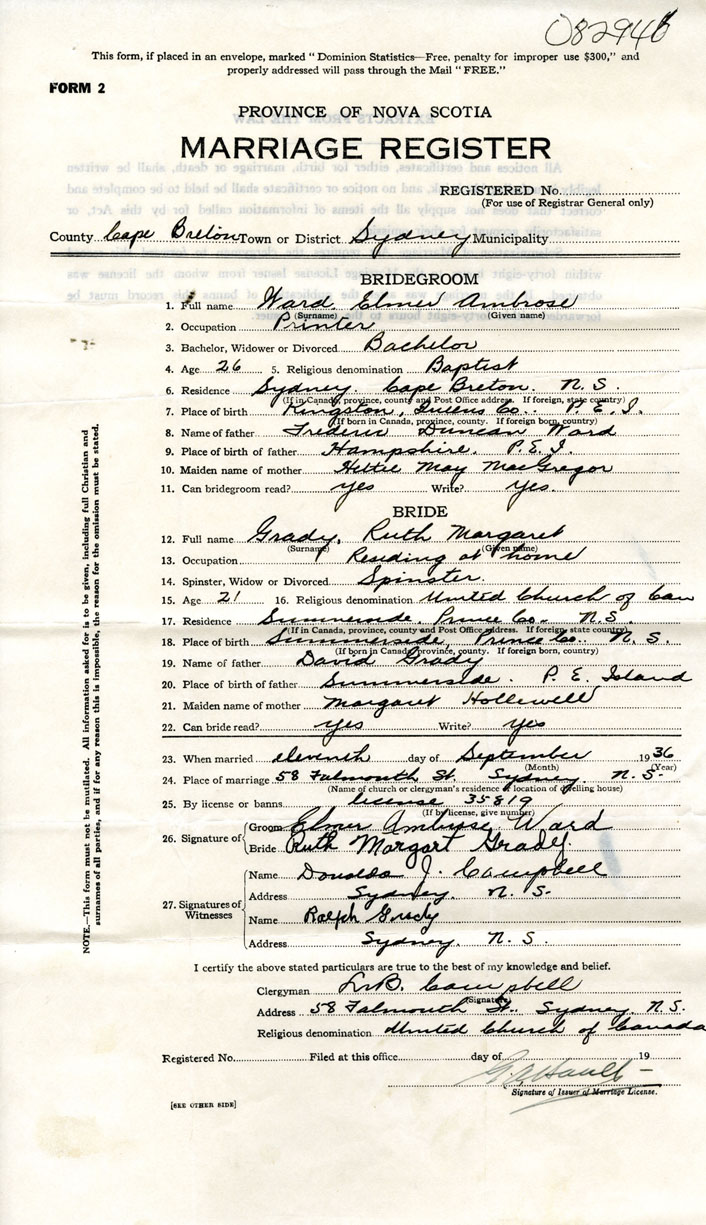 082946
This form, if placed in an envelope, marked "Dominion Statistics—Free, penalty for improper use $300," and
properly addressed will pass through the Mail "FREE."
FORM 2
PROVINCE OF NOVA SCOTIA
MARRIAGE REGISTER
REGISTERED No.
(For use of Registrar General only)
County Cape Breton Town or District Sydney Municipality
BRIDEGROOM
1. Full name Ward, Elmer Ambrose
(Surname) (Given name)
2. Occupation Printer
3. Bachelor, Widower or Divorced Bachelor
4. Age 26 5. Religious denomination Baptist
6. Residence Sydney. Cape Breton. N.S.
(If in Canada, province, county and Post Office address. If foreign, state country)
7. Place of birth Kingston, Queens Co.. P.E.I.
(If born in Canada, province, county. If foreign born, country)
8. Name of father Frederic Duncan Ward
9. Place of birth of father Hampshire. P.E.I.
10. Maiden name of mother May MacGregor
11. Can bridegroom read? yes Write? yes.
BRIDE
12. Full name Grady, Ruth Margaret
(Surname) (Given name)
13. Occupation Residing at home
14. Spinster, Widow or Divorced Spinster.
15. Age 21 16. Religious denomination United Church of Can
17. Residence Summerside. Prince Co.. N.S.
(If in Canada, province, county and Post Office address. If foreign, state country)
18. Place of birth Summerside. Prince Co.. N.S.
(If born in Canada, province, county. If foreign born, country)
19. Name of father David Grady
20. Place of birth of father Summerside. P.E. Island
21. Maiden name of mother Margaret Holliwell
22. Can bride read? yes Write? yes
23. When married eleventh day of September 1936
(Month) (Year)
24. Place of marriage 58 Falmouth St. Sydney. N.S.
(Name of church or clergyman's residence or location of dwelling house)
25. By license or banns license 35819
(If by license, give number)
26. Signature of
Groom Elmer Ambrose Ward
Bride Ruth Margart Grady.
27. Signatures of Witnesses
Name Donalda J. Campbell
Address Sydney. N.S.
Name Ralph Grady
Address Sydney. N.S.
I certify the above stated particulars are true to the best of my knowledge and belief.
Clergyman Campbell
(Signature)
Address 58 Falmouth St. Sydney. N.S.
Religious denomination United Church of Canada
Registered No. Filed at this office day of 19
Signature of Issuer of Marriage License.
[SEE OTHER SIDE]
NOTE.—This form must not be mutilated. All information asked for is to be given, including full Christian and
surnames of all parties, and if for any reason this is impossible, the reason for the omission must be stated.